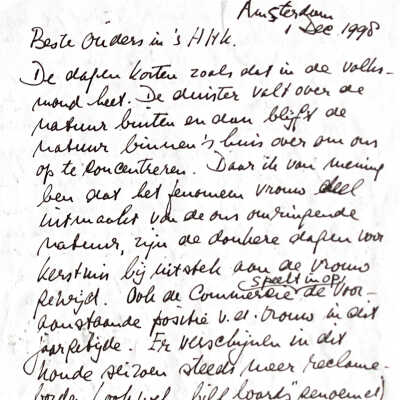 Amsterdam
1 Dec 1998
Beste Ouders in 's HHk.
De dagen korten zoals dat in de volks-
mond heet. De duister valt over de
natuur buiten en dan blijft de
natuur binnen 's huis over om ons
op te concentreren. Daar ik van mening
ben dat het fenomeen vrouw deel
uitmaakt van de ons omringende
natuur, zijn de donkere dagen voor
kerstmis bij uitstek aan de vrouw
gewijd. Ook de Commercie speelt in op de voor-
aanstaande positie v.d. vrouw in dit
jaargetijde. Er verschijnen in dit
koude seizoen steeds meer reclame-
borden (ook wel "billboards" genoemd)